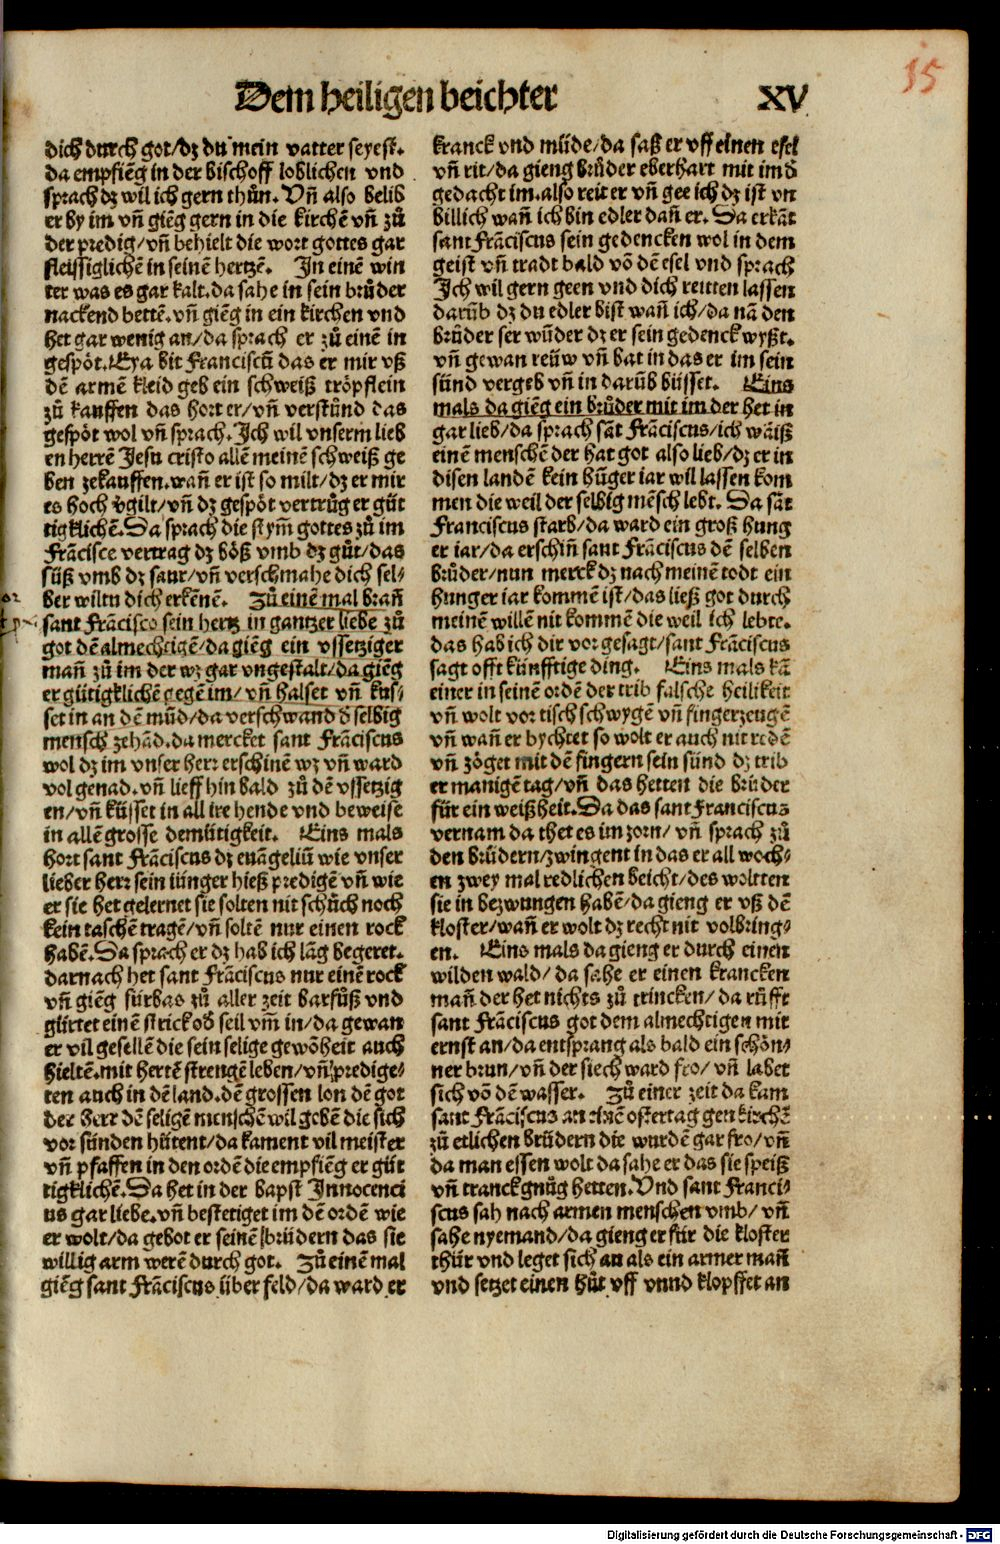 15
Dem heiligen beichter XV
dich durch got/dz du mein vatter seyest.
da empfiēg in der bischoff loblichen vnd
sprach dz wil ich gern thůn. Vn̄ also belib
er by im vn̄ giēg gern in die kirchē vn̄ zů
der predig/vn̄ behielt die wort gottes gar
fleissiglichē in seinē hertzē. In einē win
ter was es gar kalt.da sahe in sein brůder
nackend bettē.vn̄ giēg in ein kirchen vnd
het gar wenig an/da sprach er zů einē in
gespöt.Eya bit Franciscū das er mir vß
dē armē kleid geb ein schweiß tröpflein
zů kauffen das hort er/vn̄ verstůnd das
gespöt wol vn̄ sprach.Ich wil vnserm lieb
en herrē Jesu cristo allē meinē schweiß ge
ben zekauffen.wan̄ er ist so milt/dz er mir
es hoch v̄gilt/vn̄ dz gespöt vertrůg er güt
tigklichē.Da sprach die stym̄ gottes zů im
Frācisce vertrag dz böß vmb dz gůt/das
süß vmb dz saur/vn̄ verschmahe dich sel⸗
ber wiltu dich erkēnē. Zů einē mal bran̄
sant Frācisco sein hertz in gantzer liebe zů
got dē almechtigē/da giēg ein vssetziger
man̄ zů im der wz gar vngestalt/da giēg
er gütigklichē gegē im/vn̄ halset vn̄ kus⸗
set in an dē mūd/da verschwand d̄ selbig
mensch zehād.da mercket sant Frāciscus
wol dz im vnser herr erschinē wz vn̄ ward
vol genad.vn̄ lieff hin bald zů dē vssetzig
en/vn̄ küsset in all ire hende vnd beweise
in allē grosse demütigkeit. Eins mals
hort sant Frāciscus dz euāgeliū wie vnser
lieber herr sein iünger hieß predigē vn̄ wie
er sie het gelernet sie solten nit schůch noch
kein taschē tragē/vn̄ soltē nur einen rock
habē.Da sprach er dz hab ich lāg begeret.
darnach het sant Frāciscus nur einē rock
vn̄ giēg fürbas zů aller zeit barfůß vnd
gürtet einē strick od̄ seil vm̄ in/da gewan
er vil gesellē die sein selige gewōheit auch
hieltē.mit hertē strengē leben/vn̄ predige⸗
ten auch in dē land.dē grossen lon dē got
der herr dē seligē menschē wil gebē die sich
vor sünden hütent/da kament vil meister
vn̄ pfaffen in den ordē die empfiēg er güt
tigklichē.Da het in der bapst Innocenci
us gar liebe.vn̄ bestetiget im dē ordē wie
er wolt/da gebot er seinē brüdern das sie
willig arm werē durch got. Zů einē mal
giēg sant Frāciscus über feld/da ward er
kranck vnd müde/da saß er vff einen esel
vn̄ rit/da gieng brůder eberhart mit im d̄
gedacht im.also reit er vn̄ gee ich dz ist vn
billich wan̄ ich bin edler dan̄ er. Da erkāt
sant Frāciscus sein gedencken wol in dem
geist vn̄ tradt bald vō dē esel vnd sprach
Ich wil gern geen vnd dich reitten lassen
darūb dz du edler bist wan̄ ich/da nā den
brůder ser wūder dz er sein gedenck wyßt.
vn̄ gewan reüw vn̄ bat in das er im sein
sünd vergeb vn̄ in darūb büsset. Eins
mals da giēg ein brůder mit im der het in
gar lieb/da sprach sāt Frāciscus/ich wāiß
einē menschē der hat got also lieb/dz er in
disen landē kein hūger iar wil lassen kom
men die weil der selbig mēsch lebt. Da sāt
Franciscus starb/da ward ein groß hung
er iar/da erschin̄ sant Frāciscus dē selben
brůder/nun merck dz nach meinē todt ein
hunger iar kommē ist/das ließ got durch
meinē willē nit kommē die weil ich lebte.
das hab ich dir vor gesagt/sant Frāciscus
sagt offt künfftige ding. Eins mals kā
einer in seinē ordē der trib falsche heilikeit
vn̄ wolt vor tisch schwygē vn̄ fingerzeugē
vn̄ wan̄ er bychtet so wolt er auch nit redē
vn̄ zöget mit dē fingern sein sünd dz trib
er manigē tag/vn̄ das hetten die brüder
für ein weißheit.Da das sant Franciscus
vernam da thet es im zorn/ vn̄ sprach zů
den brüdern/zwingent in das er all woch⸗
en zwey mal redlichen beicht/des woltten
sie in bezwungen habē/da gieng er vß dē
kloster/wan̄ er wolt dz recht nit volbring⸗
en. Eins mals da gieng er durch einen
wilden wald/ da sahe er einen krancken
man̄ der het nichts zů trincken/da růfft
sant Frāciscus got dem almechtigen mit
ernst an/da entsprang als bald ein schön⸗
ner brun/vn̄ der siech ward fro/vn̄ labet
sich vō dē wasser. Zů einer zeit da kam
sant Frāciscus an einē ostertag gen kirchē
zů etlichen brüdern die wurdē gar fro/vn̄
da man essen wolt da sahe er das sie speiß
vn̄ tranck gnůg hetten.Vnd sant Franci⸗
scus sah nach armen menschen vmb/ vn̄
sahe nyemand/da gieng er für die kloster
thür vnd leget sich an als ein armer man̄
vnd setzet einen hůt vff vnnd klopffet an
Digitalisierung gefördert durch die Deutsche Forschungsgemeinschaft - DFG